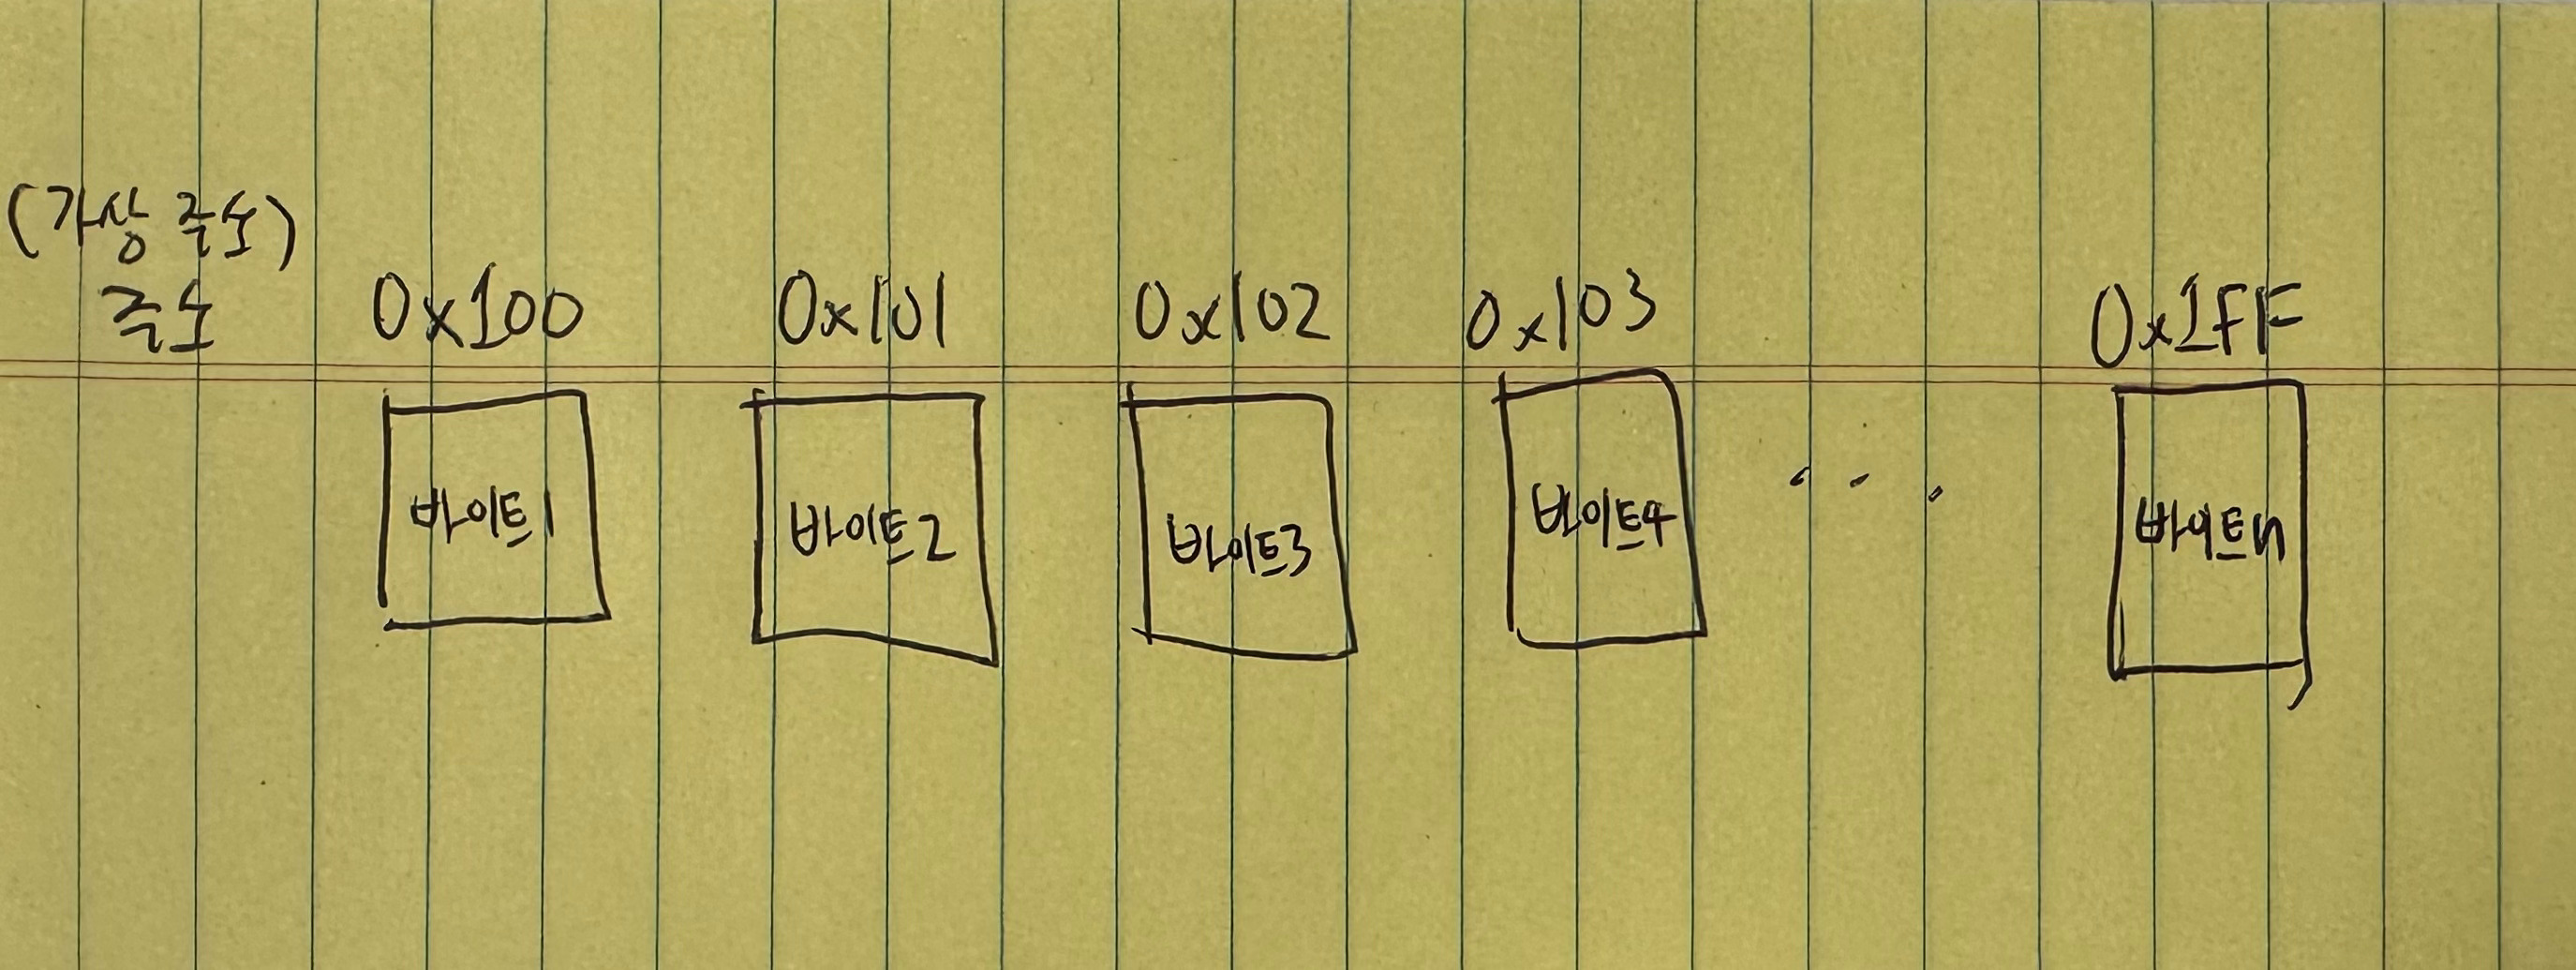 (가상 주소)
주소 0x100 0x101 0x102 0x103 0x1FF
바이트1 바이트2 바이트3 바이트4 ... 바이트n